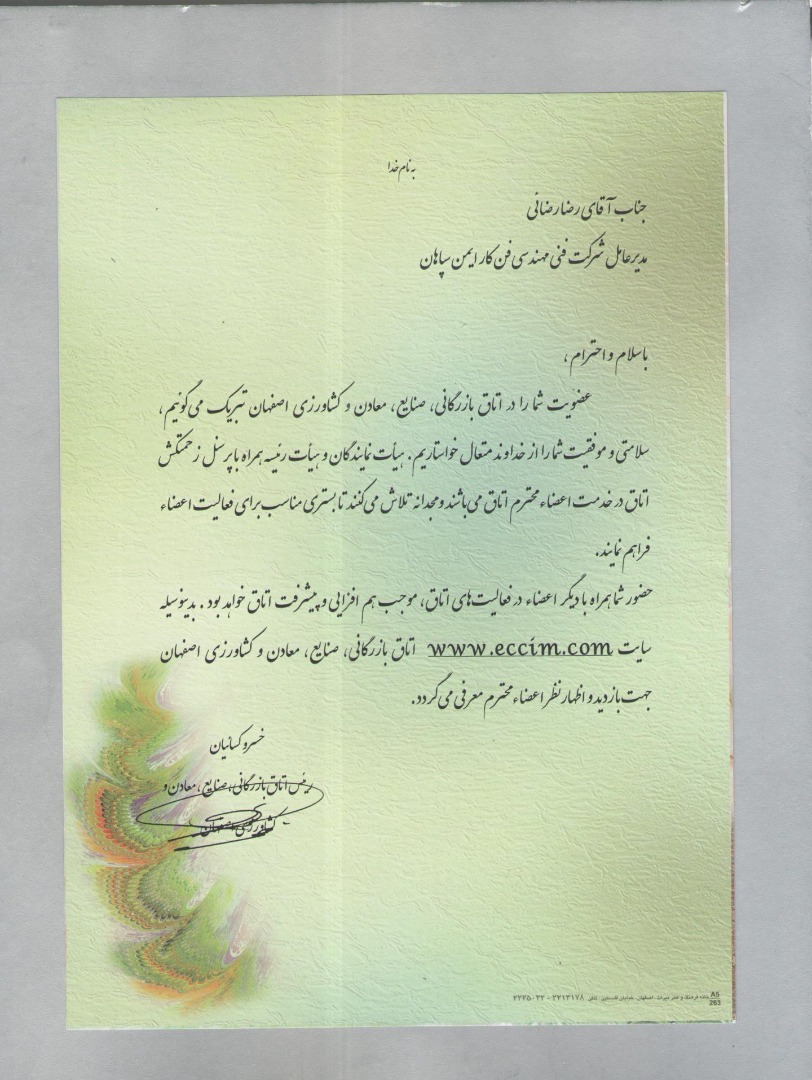 به نام خدا
جناب آقای رضا رضائی
مدیرعامل شرکت فنی مهندسی فن کار ایمن سپاهان
باسلام و احترام ،
عضویت شما را در اتاق بازرگانی، صنایع، معادن و کشاورزی اصفهان تبریک می‌گوئیم،
سلامتی و موفقیت شما را از خداوند متعال خواستاریم. هیأت نمایندگان و هیأت رئیسه همراه با پرسنل زحمتکش
اتاق در خدمت اعضاء محترم اتاق می‌باشند و مجدانه تلاش می‌کنند تا بستری مناسب برای فعالیت اعضاء
فراهم نمایند.
حضور شما همراه با دیگر اعضاء در فعالیت‌های اتاق، موجب هم افزایی و پیشرفت اتاق خواهد بود . بدینوسیله
سایت www.eccim.com اتاق بازرگانی، صنایع، معادن و کشاورزی اصفهان
جهت بازدید و اظهار نظر اعضاء محترم معرفی می‌گردد.
خسرو کسائیان
رئیس اتاق بازرگانی، صنایع، معادن و
کشاورزی اصفهان
خانه فرهنگ و هنر میراث، اصفهان، خیابان فلسطین، تلفن ۲۲۱۳۱۷۸ - ۲۲۲۵۰۲۲
A5
263